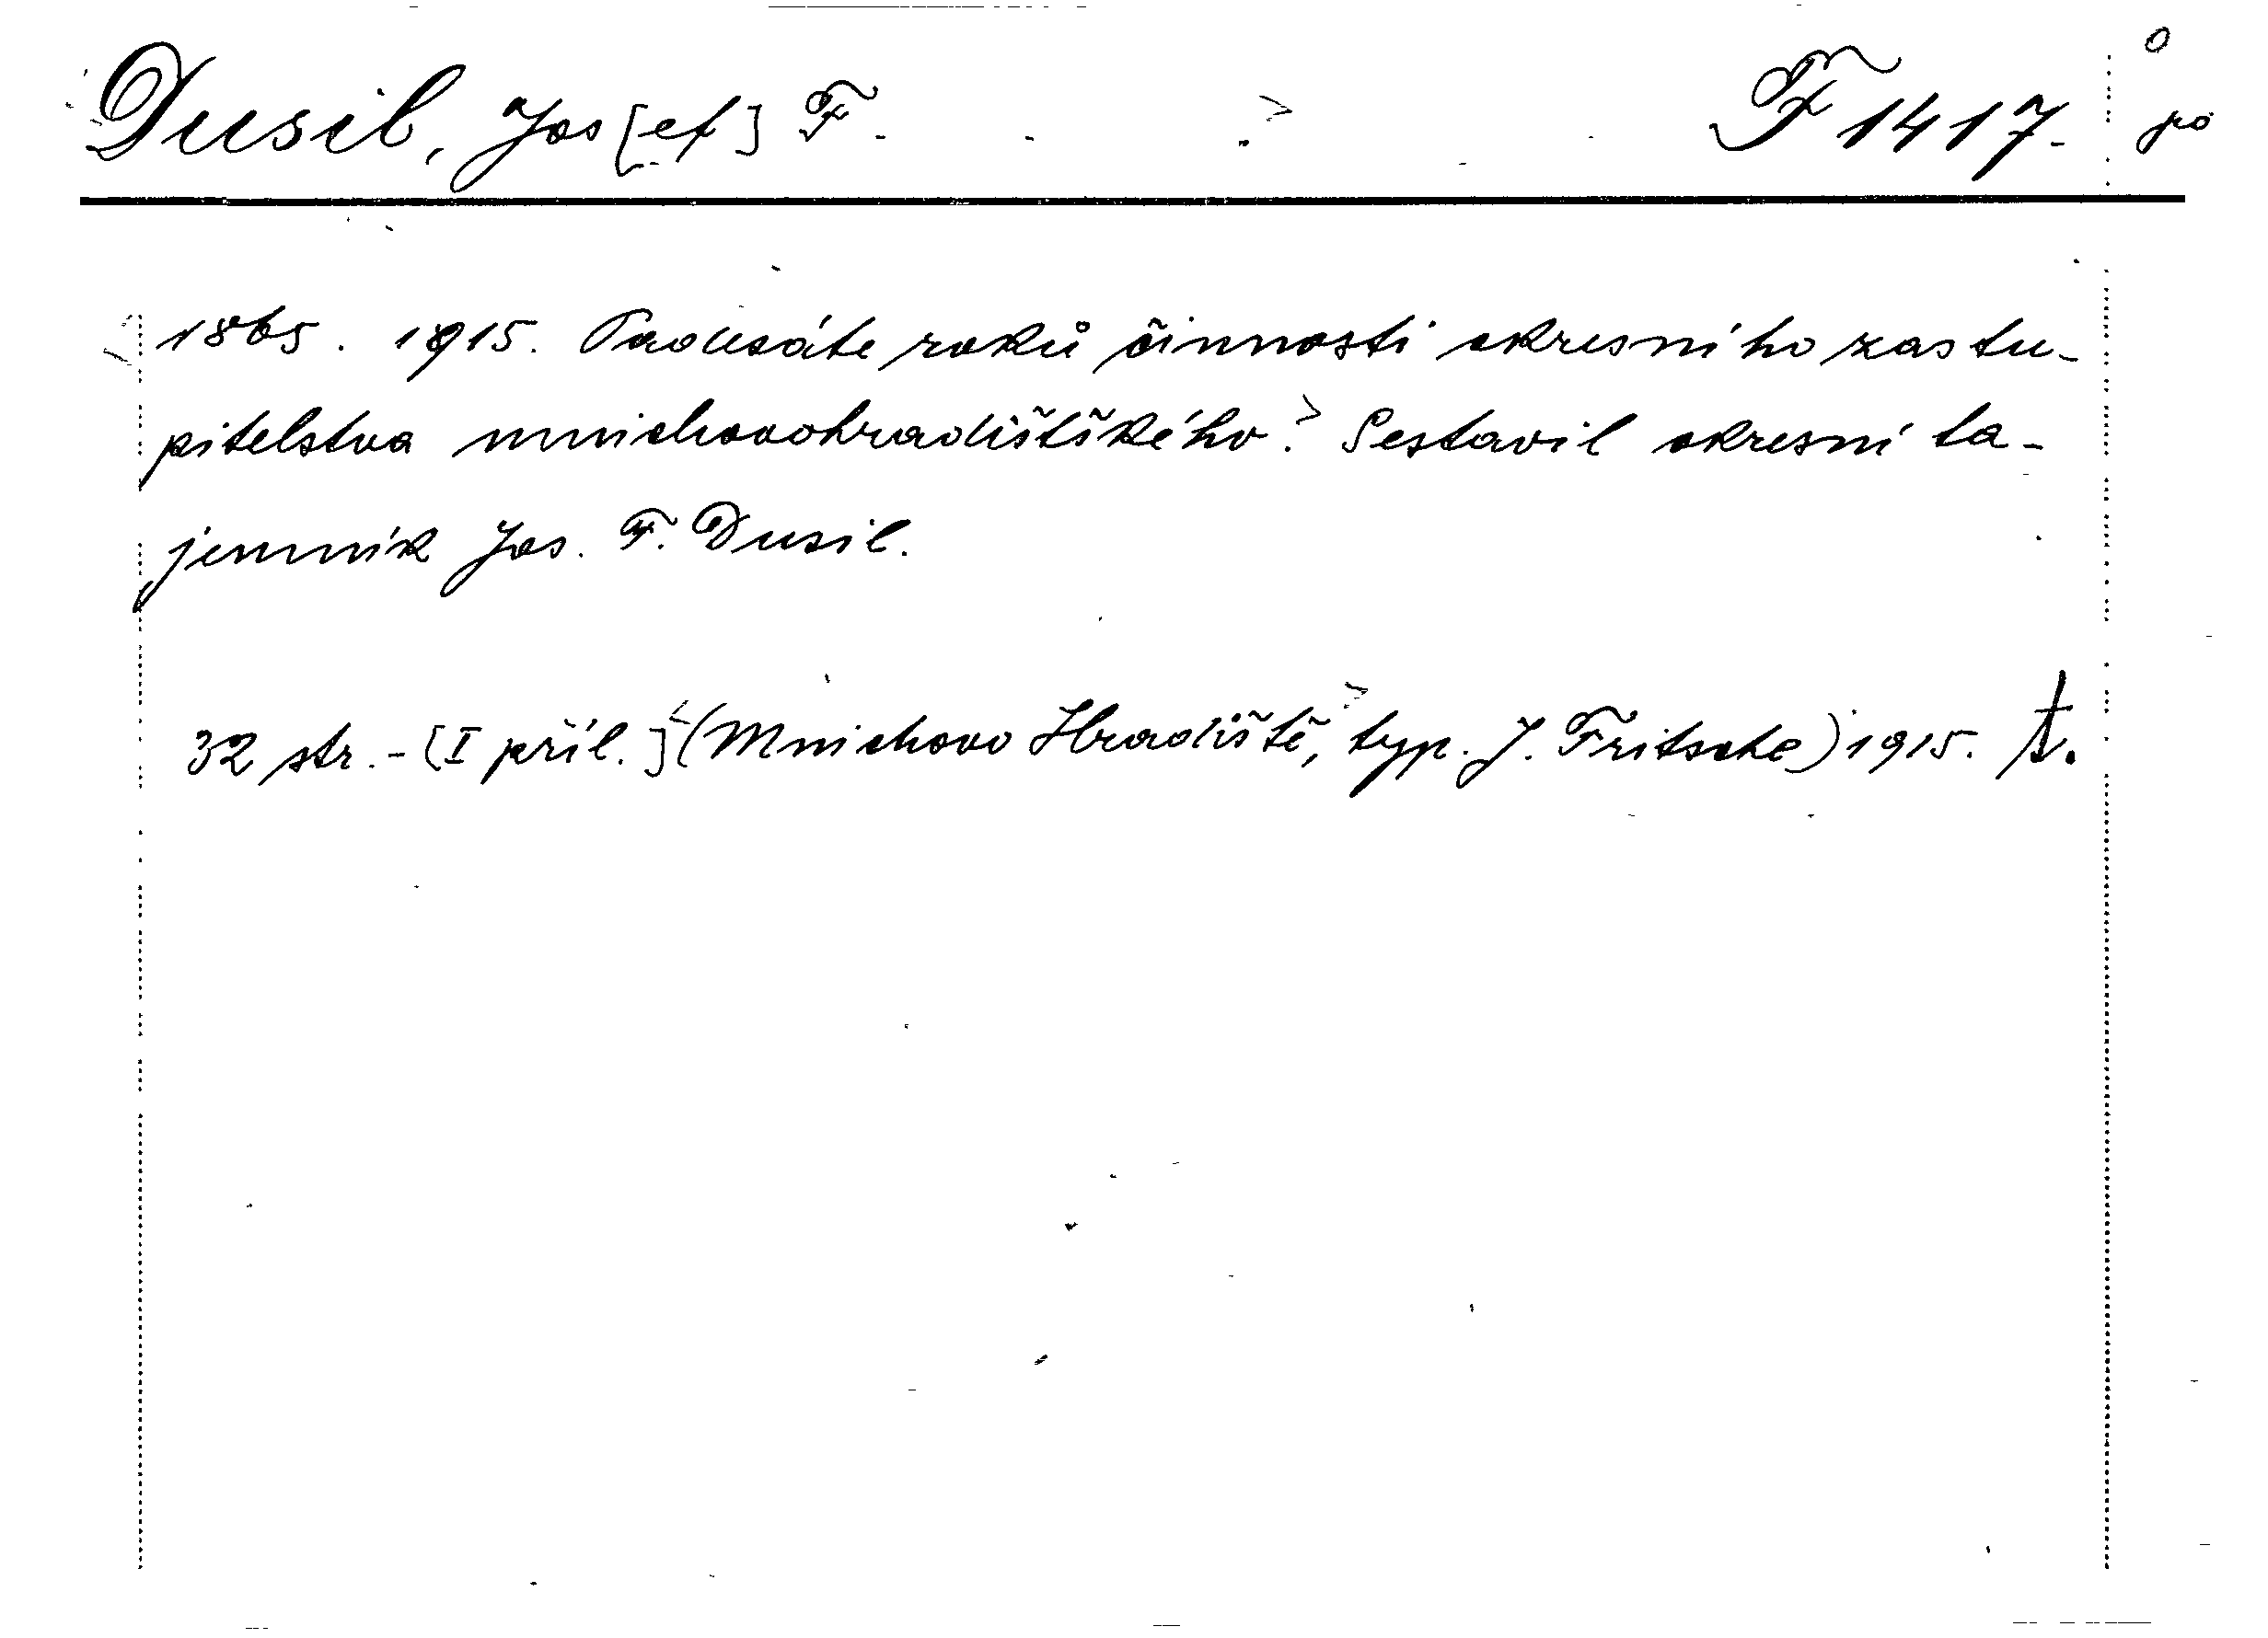 Dusil, Jos[ef] F. F 1417.
1865. 1915. Padesáte roků činnosti okresního zastu-
pitelstva mnichovohradišťského. Sestavil okresní ta-
jemník Jos. F. Dusil.
32 str. - [I příl.] (Mnichovo Hradiště, typ. J. Fritsche) 1915.